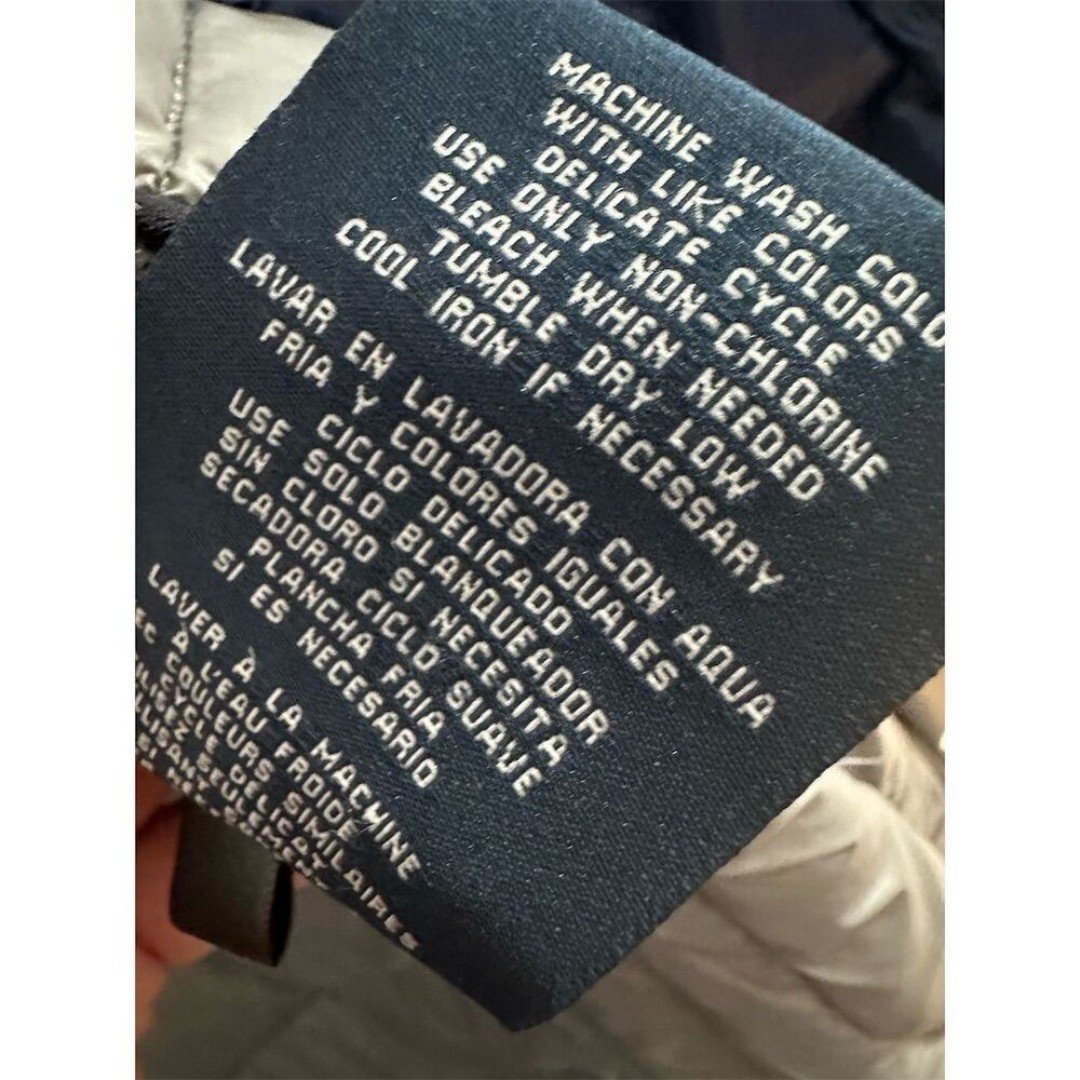 MACHINE WASH COLD
WITH LIKE COLORS
DELICATE CYCLE
USE ONLY NON-CHLORINE
BLEACH WHEN NEEDED
TUMBLE DRY LOW
COOL IRON IF NECESSARY
LAVAR EN LAVADORA CON AQUA
FRIA Y COLORES IGUALES
USE CICLO DELICADO
USE SOLO BLANQUEADOR
SIN CLORO SI NECESITA
SECADORA CICLO SUAVE
PLANCHA FRIA
SI ES NECESARIO
LAVER À LA MACHINE
À L'EAU FROIDE
COULEURS SIMILAIRES
CYCLE DÉLICAT